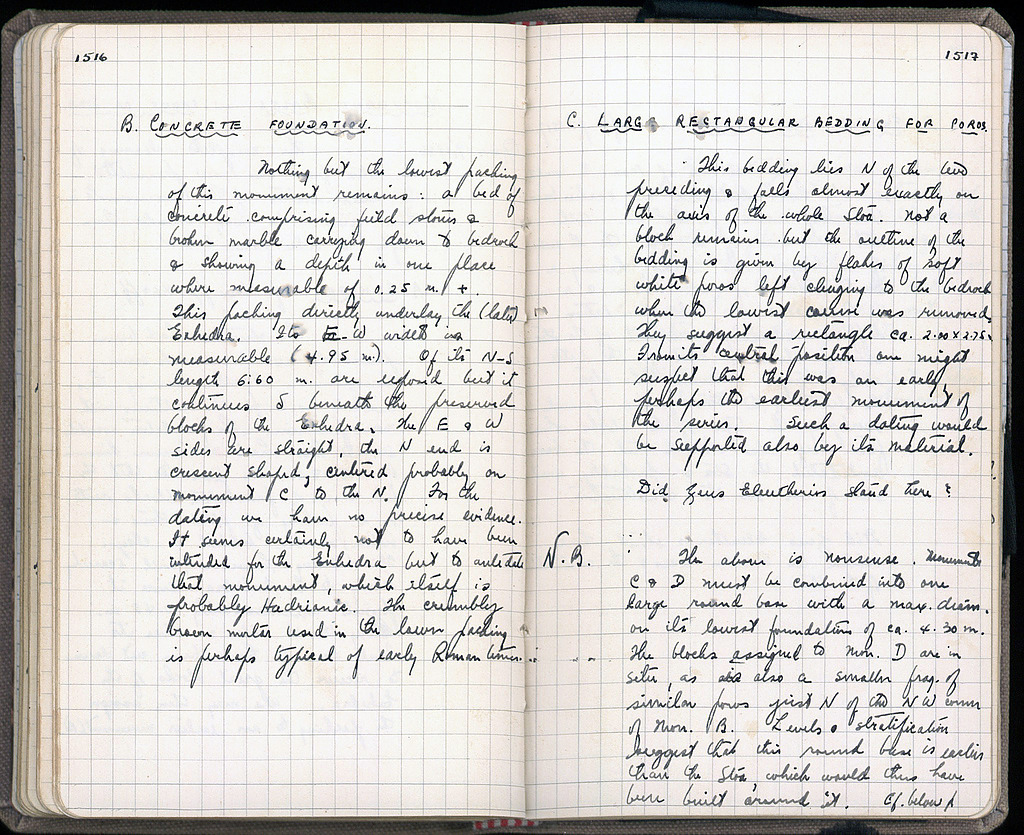 1516
B. CONCRETE FOUNDATION.
Nothing but the lowest packing
of this monument remains: a bed of
concrete comprising field stones &
broken marble carrying down to bedrock
& showing a depth in one place
where measurable of 0.25 m. +.
This packing directly underlay the (later)
Exhedra. Its E-W width is
measurable (4.95 m.). Of its N-S
length 6.60 m. are exposed but it
continues S beneath the preserved
blocks of the Exhedra. The E & W
sides are straight, the N end is
crescent shaped, centered probably on
monument C to the N. For the
dating we have no precise evidence.
It seems certainly not to have been
intended for the Exhedra but to antedate
that monument, which itself is
probably Hadrianic. The crumbly
brown mortar used in the lower packing
is perhaps typical of early Roman times.
1517
C. LARGE RECTANGULAR BEDDING FOR POROS.
This bedding lies N of the
preceding & falls almost exactly on
the axis of the whole Stoa. Not a
block remains but the outline of the
bedding is given by flakes of soft
white poros left clinging to the bedrock
when the lowest course was removed.
They suggest a rectangle ca. 2.00 x 2.75
From its central position one might
suspect that this was an early,
perhaps the earliest monument of
the series. Such a dating would
be supported also by its material.
Did Zeus Eleutherios stand here?
N.B. The above is nonsense. Monuments
C & D must be combined into one
large round base with a max. diam.
on its lowest foundations of ca. 4.30 m.
The blocks assigned to Mon. D are in
situ, as also a smaller frag. of
similar poros just N of the NW corner
of Mon. B. Levels & stratification
suggest that this round base is earlier
than the Stoa which would thus have
been built around it. Cf. below p